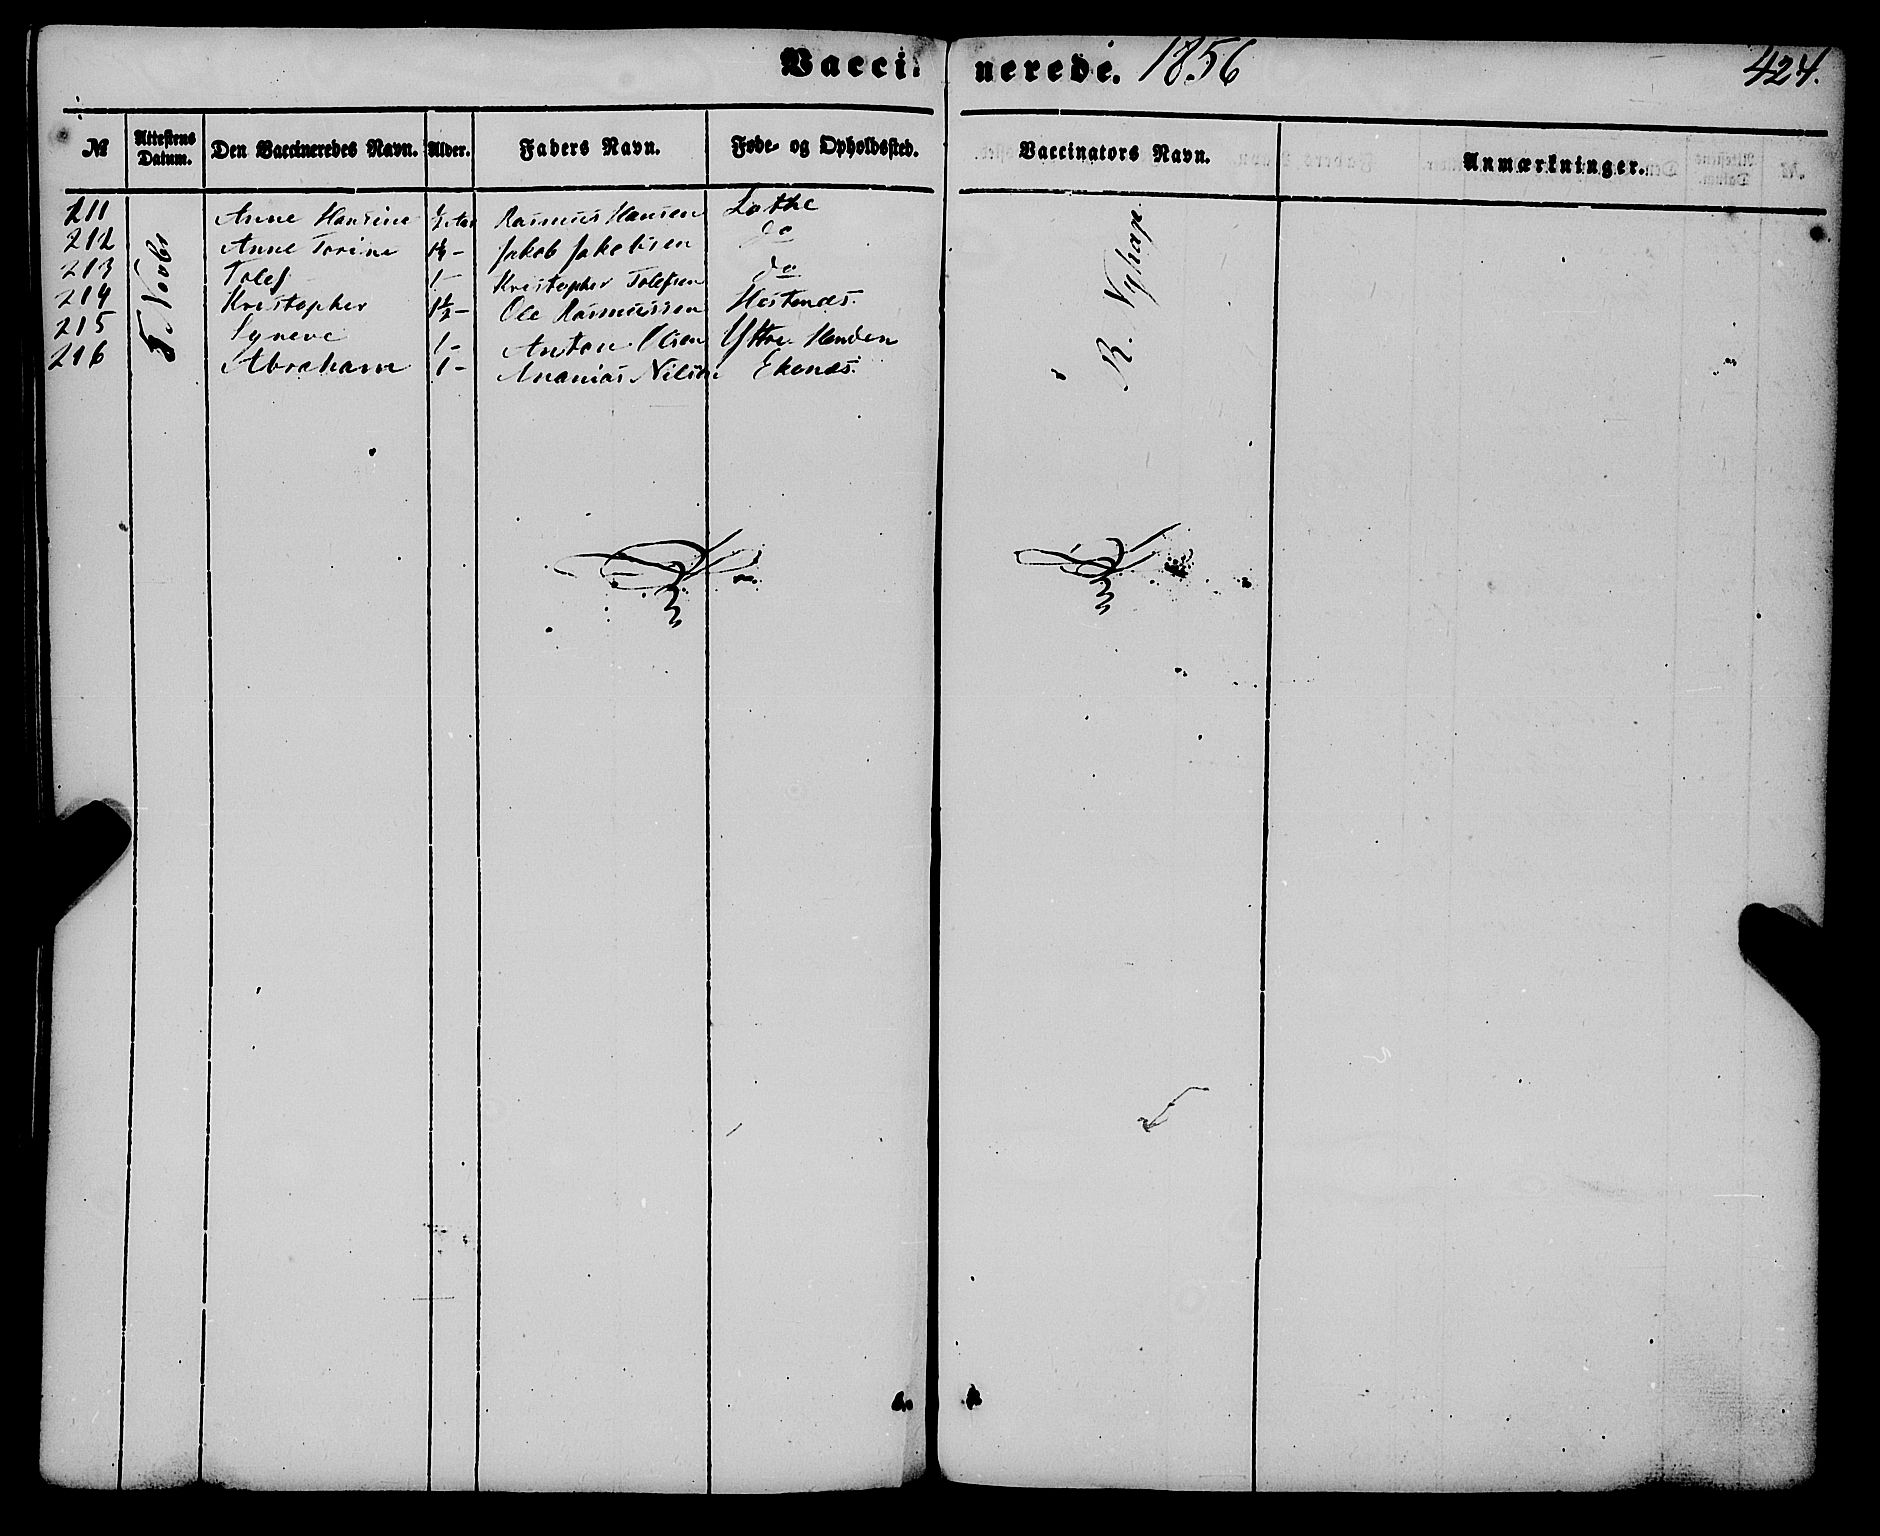 Vaccinerede. 1856
424.
№ Attestens Datum. Den Vaccineredes Navn. Alder. Faders Navn. Føde- og Opholdssted. Vaccinators Navn. Anmærkninger.
211 Anne Hansine ½ Aar Rasmus Hansen Lothe
212 Anne Torine Jakob Jakobsen do
213 Tolef 1 - Kristopher Tolefsen do
214 Kristopher 1½ - Ole Rasmussen Hestenæs.
215 Syneve 1 - Anton Olsen Yttre Henden
216 Abraham 1 - Ananias Nilsen Ekenæs.
5 Novbr
R. Nyhap